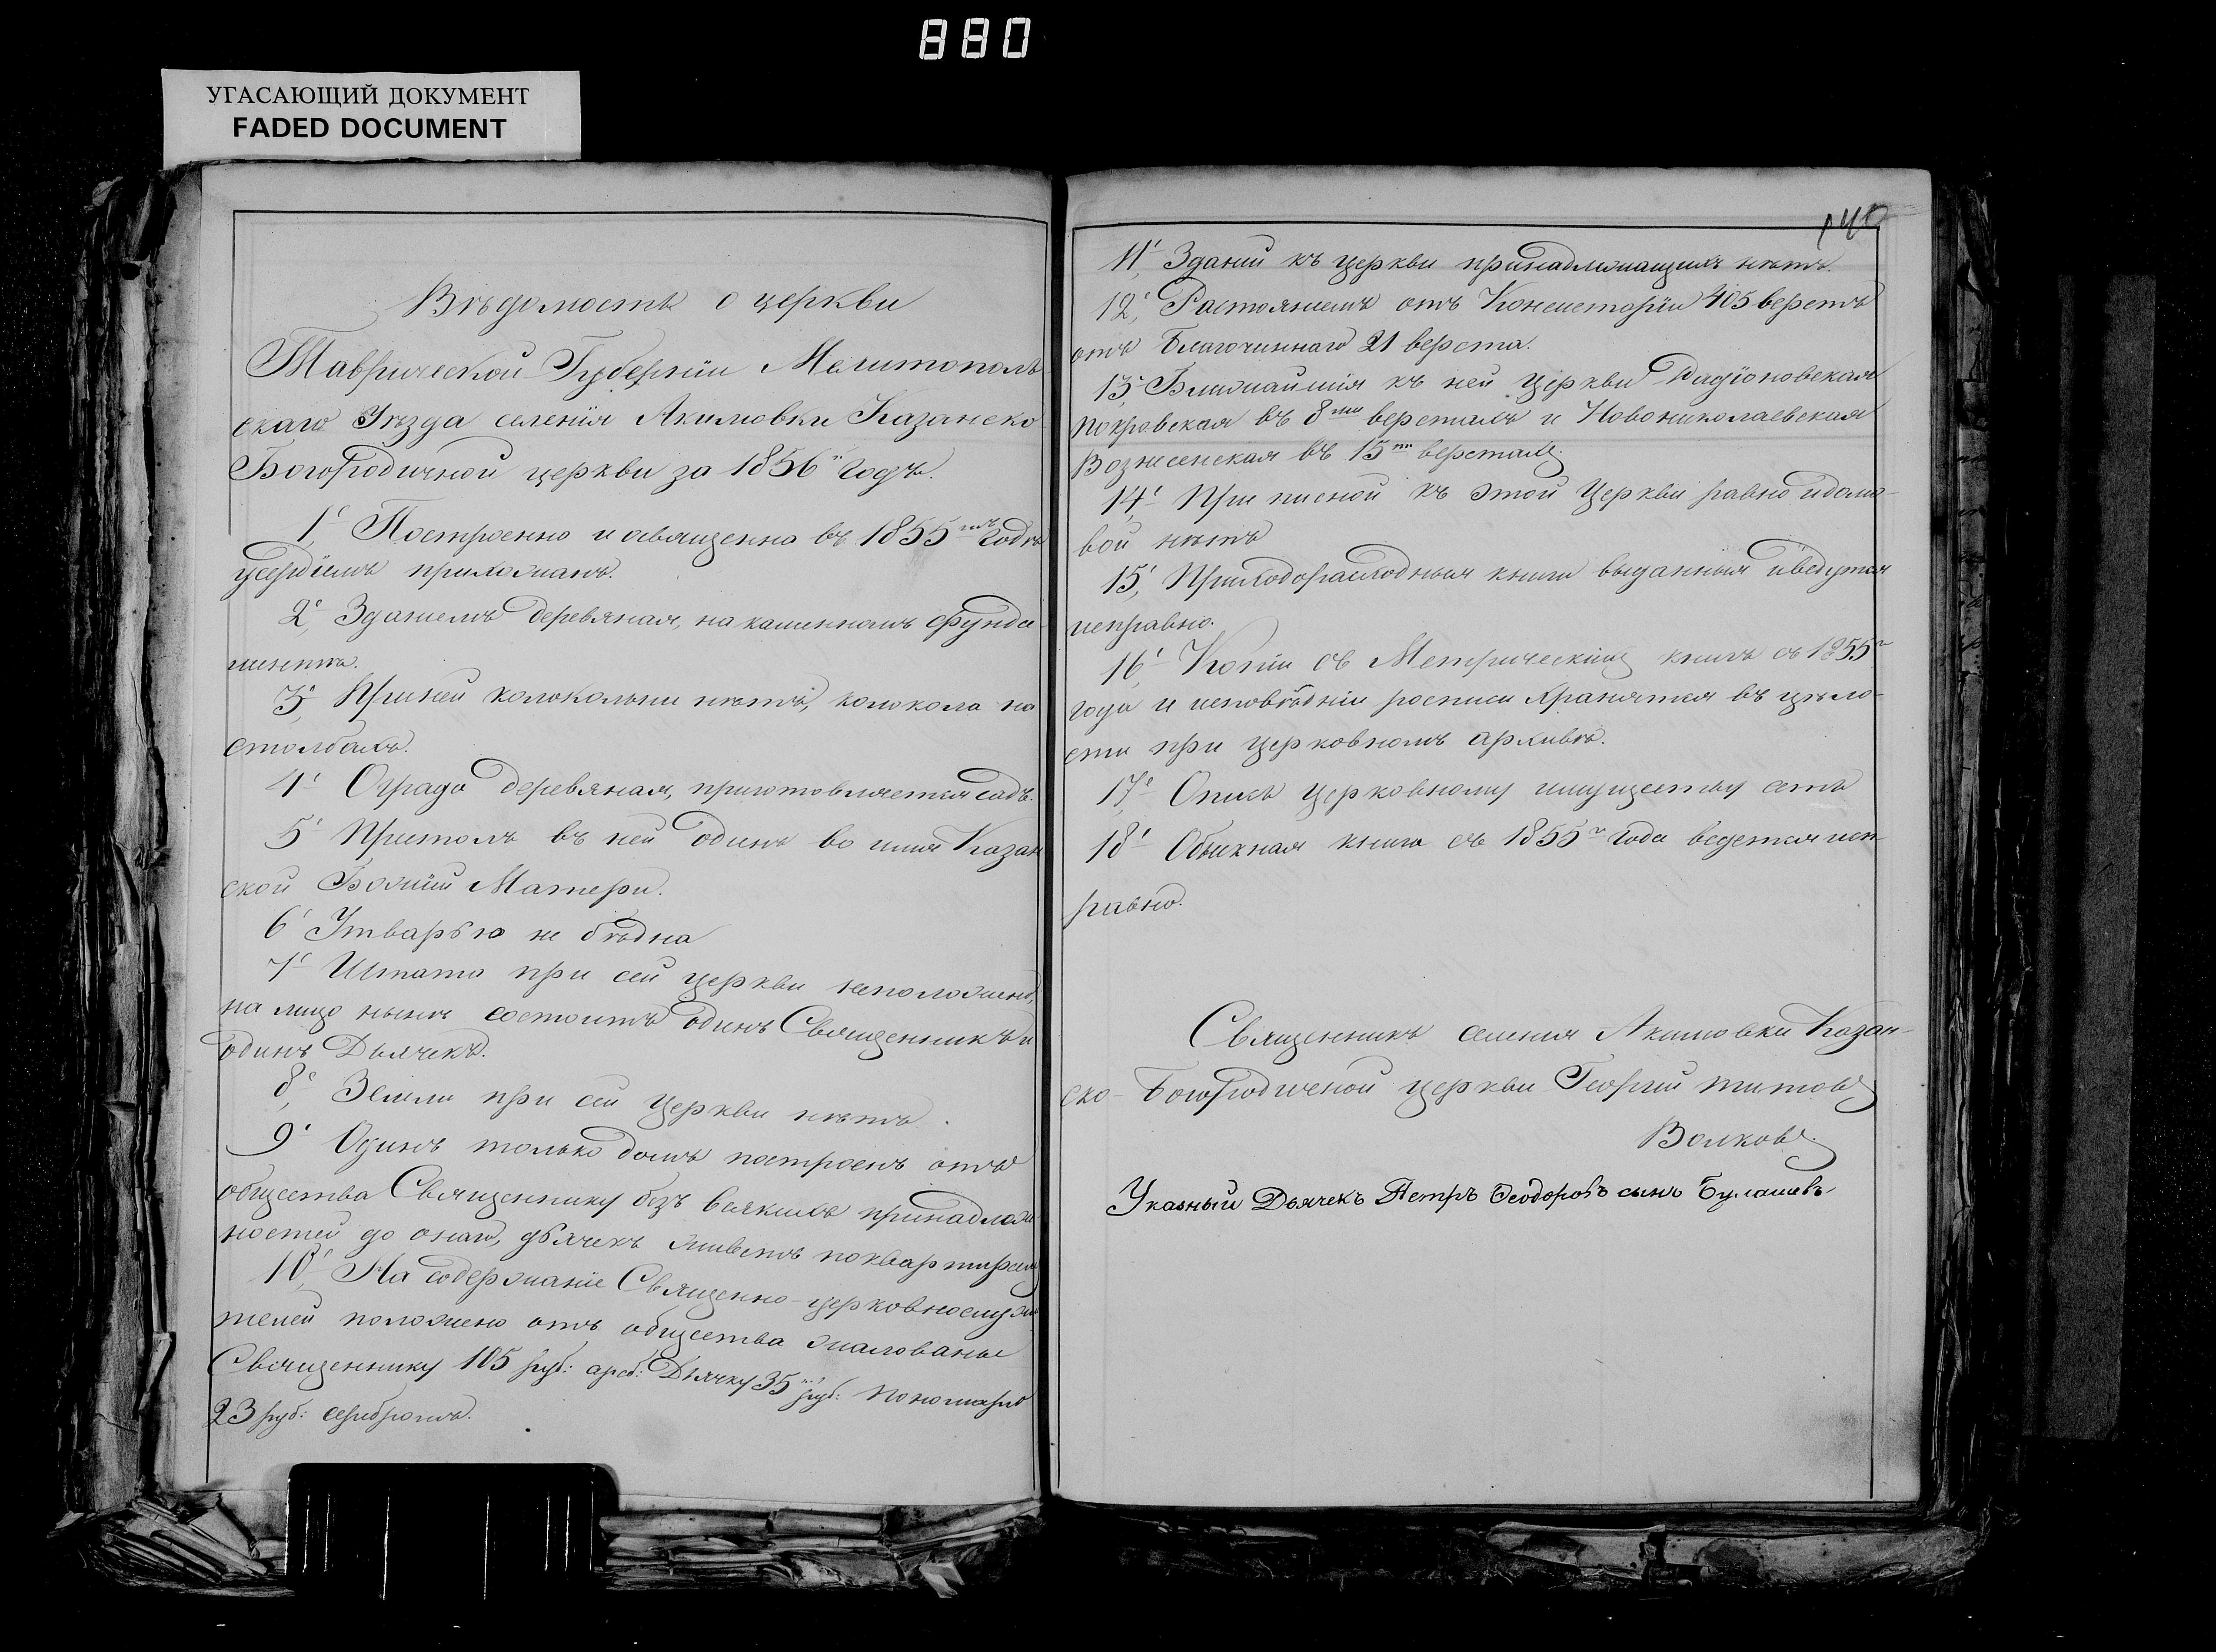 880
УГАСАЮЩИЙ ДОКУМЕНТ
FADED DOCUMENT
Вѣдомость о церкви
Таврической Губерніи Мелитополь
скаго Уѣзда селенія Акимовки Казанско
Богородичной церкви за 1856й годъ.
1, Построенно и освященно въ 1855мъ годѣ
усердіемъ прихожанъ.
2, Зданіемъ деревяная, на каменномъ фунда-
ментѣ.
3, При ней колокольни нѣтъ, колокола на
столбахъ.
4, Ограда деревяная, приготовляется садъ.
5, Престолъ въ ней одинъ во имя Казан
ской Божіей Матери.
6, Утварью не бѣдна
7, Штата при сей церкви неположено,
на лицо нынѣ состоитъ одинъ Священникъ и
одинъ Дьячекъ.
8, Земли при сей церкви нѣтъ.
9, Одинъ только домъ построенъ отъ
общества Священнику безъ всякихъ принадлеж
ностей до онаго, дьячекъ живетъ по квартирамъ
10, На содержаніе Священно-церковнослужи
телей положено отъ общества жалованье
Священнику 105 руб: сереб: Дьячку 35 руб: Пономарю
23 руб: серебромъ.
140
11, Зданій къ церкви принадлежащихъ нѣтъ.
12, Растояніемъ отъ Консисторіи 405 верстъ
отъ Благочиннаго 21 верста.
13, Ближайшія къ ней церкви Радіоновская
Покровская въ 8ми верстахъ и Новониколаевская
Вознесенская въ 15ти верстахъ.
14, Приписной къ этой Церкви равно и домо-
вой нѣтъ
15, Приходорасходныя книги выданныя и ведутся
исправно.
16, Копіи съ Метрическихъ книгъ съ 1855го
года и исповѣдніи росписи хранятся въ цѣло-
сти при церковномъ архивѣ.
17, Опись церковному имуществу есть
18, Обыскная книга съ 1855го года ведется исп-
равно.
Священникъ селенія Акимовки Казан-
ско-Богородичной церкви Георгій Титовъ
Волковъ.
Указный Дьячекъ Петръ Ѳеодоровъ сынъ